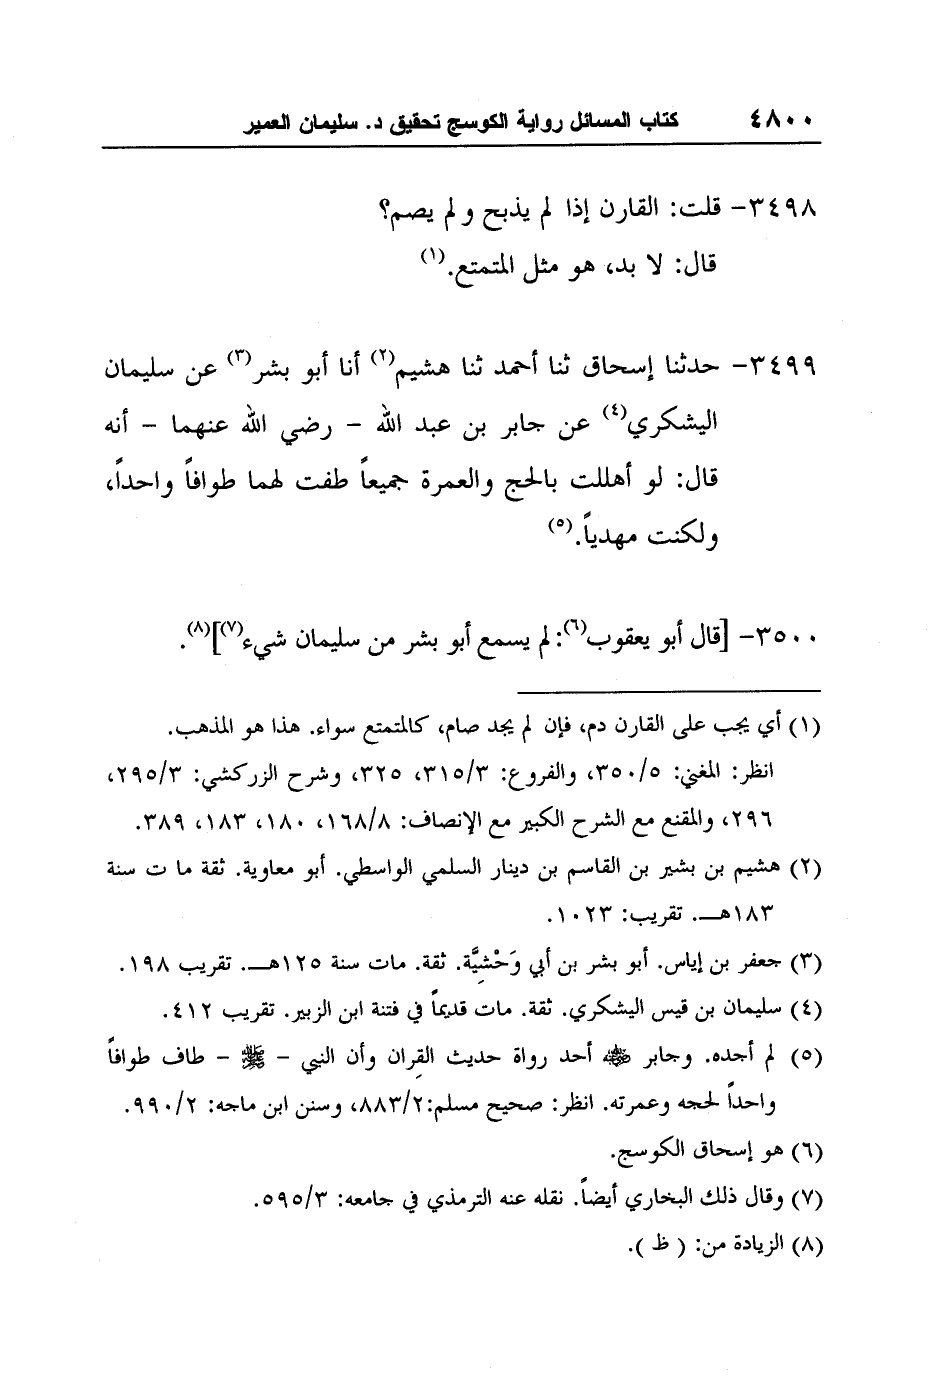 ٤٨٠٠ كتاب المسائل رواية الكوسج تحقيق د. سليمان العمير
٣٤٩٨- قلت: القارن إذا لم يذبح ولم يصم؟
قال: لا بد، هو مثل المتمتع.(١)
٣٤٩٩- حدثنا إسحاق ثنا أحمد ثنا هشيم(٢) أنا أبو بشر(٣) عن سليمان
اليشكري(٤) عن جابر بن عبد الله - رضي الله عنهما - أنه
قال: لو أهللت بالحج والعمرة جميعاً طفت لهما طوافاً واحداً،
ولكنت مهدياً.(٥)
٣٥٠٠- [قال أبو يعقوب(٦): لم يسمع أبو بشر من سليمان شيء(٧)](٨).
(١) أي يجب على القارن دم، فإن لم يجد صام، كالمتمتع سواء. هذا هو المذهب.
انظر: المغني: ٣٥٠/٥، والفروع: ٣١٥/٣، ٣٢٥، وشرح الزركشي: ٢٩٥/٣،
٢٩٦، والمقنع مع الشرح الكبير مع الإنصاف: ١٦٨/٨، ١٨٠، ١٨٣، ٣٨٩.
(٢) هشيم بن بشير بن القاسم بن دينار السلمي الواسطي. أبو معاوية. ثقة ما ت سنة
١٨٣هـ. تقريب: ١٠٢٣.
(٣) جعفر بن إياس. أبو بشر بن أبي وَحْشِيَّة. ثقة. مات سنة ١٢٥هـ. تقريب ١٩٨.
(٤) سليمان بن قيس اليشكري. ثقة. مات قديماً في فتنة ابن الزبير. تقريب ٤١٢.
(٥) لم أجده. وجابر ﷺ أحد رواة حديث القِران وأن النبي - ﷺ - طاف طوافاً
واحداً لحجه وعمرته. انظر: صحيح مسلم:٨٨٣/٢، وسنن ابن ماجه: ٩٩٠/٢.
(٦) هو إسحاق الكوسج.
(٧) وقال ذلك البخاري أيضاً. نقله عنه الترمذي في جامعه: ٥٩٥/٣.
(٨) الزيادة من: ( ظ ).